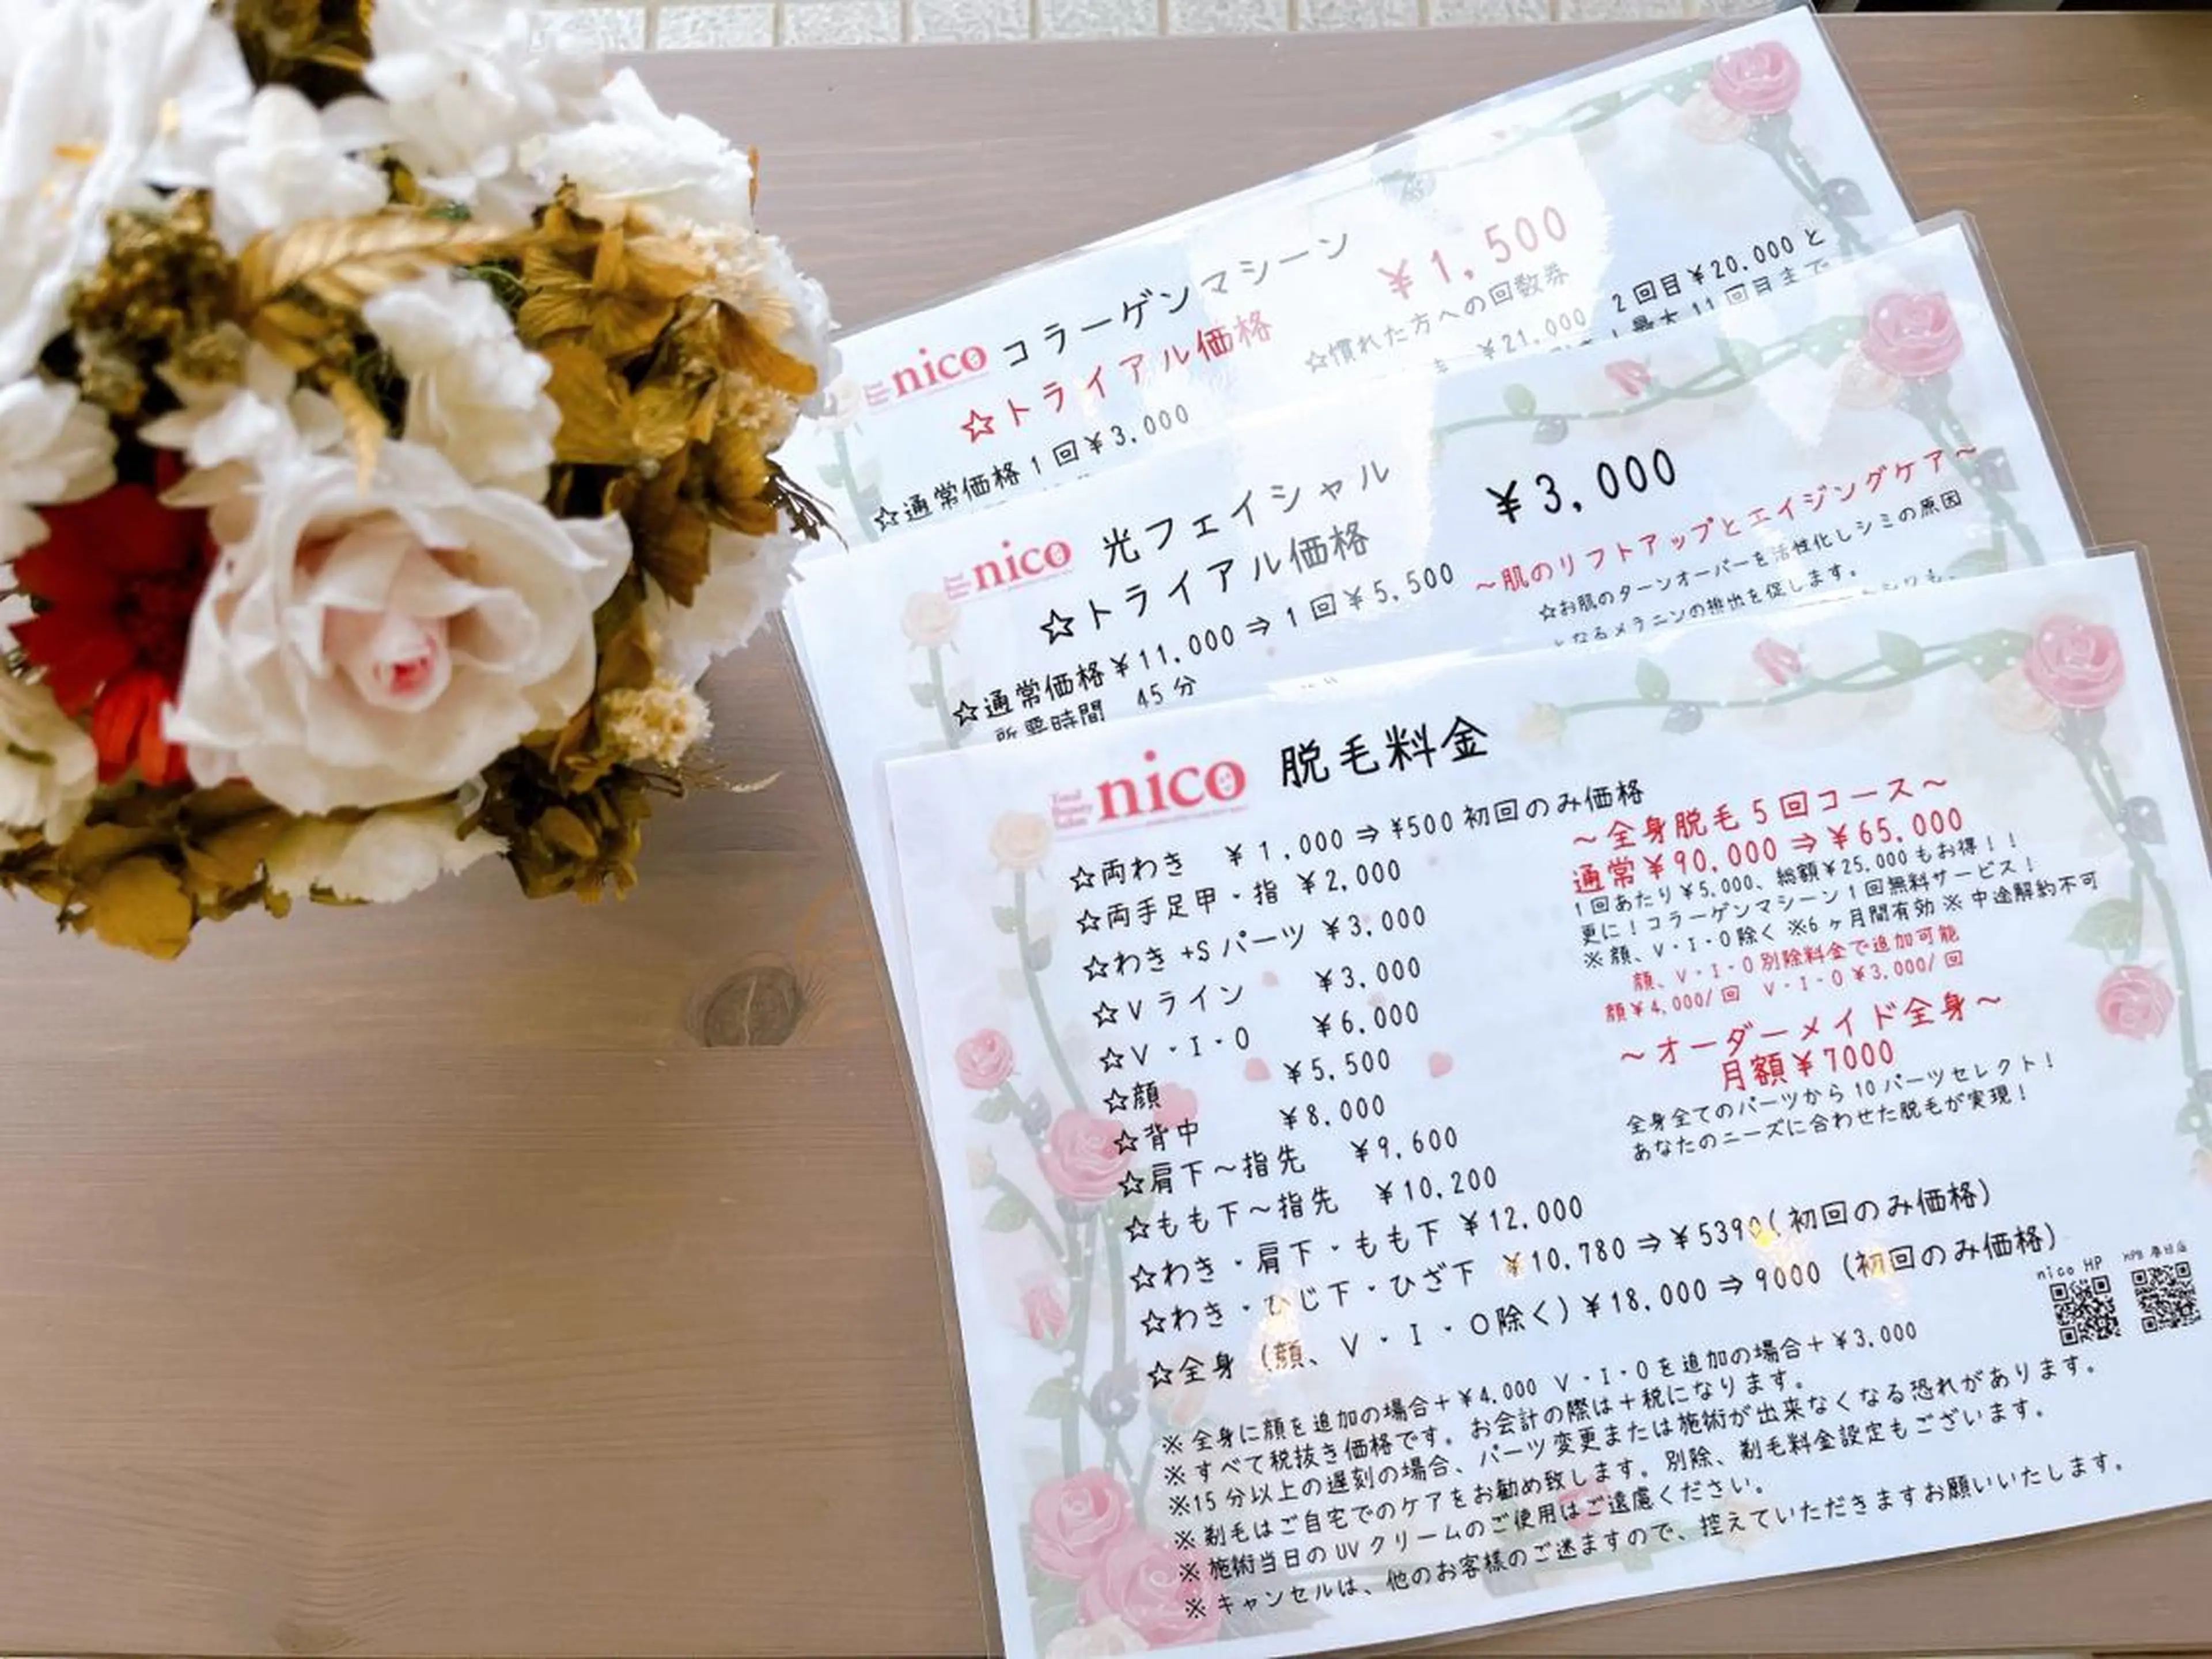 nico コラーゲンマシーン
☆トライアル価格 ¥1,500
☆通常価格1回¥3,000
☆慣れた方への回数券
¥21,000 2回目¥20,000と
最大11回目まで
nico 光フェイシャル
☆トライアル価格 ¥3,000
☆通常価格¥11,000⇒1回¥5,500
所要時間 45分
～肌のリフトアップとエイジングケア～
☆お肌のターンオーバーを活性化しシミの原因
となるメラニンの排出を促します。
Total Beauty Salon nico 脱毛料金
☆両わき ¥1,000⇒¥500初回のみ価格
☆両手足甲・指 ¥2,000
☆わき+Sパーツ ¥3,000
☆Vライン ¥3,000
☆V・I・O ¥6,000
☆顔 ¥5,500
☆背中 ¥8,000
☆肩下～指先 ¥9,600
☆もも下～指先 ¥10,200
☆わき・肩下・もも下 ¥12,000
☆わき・ひじ下・ひざ下 ¥10,780⇒¥5390(初回のみ価格)
☆全身(顔、V・I・O除く)¥18,000⇒9000(初回のみ価格)
～全身脱毛5回コース～
通常¥90,000⇒¥65,000
1回あたり¥5,000、総額¥25,000もお得!!
更に!コラーゲンマシーン1回無料サービス!
※顔、V・I・O除く ※6ヶ月間有効 ※中途解約不可
顔、V・I・O別除料金で追加可能
顔¥4,000/回 V・I・O¥3,000/回
～オーダーメイド全身～
月額¥7000
全身全てのパーツから10パーツセレクト!
あなたのニーズに合わせた脱毛が実現!
nico HP HPB 春日店
※全身に顔を追加の場合+¥4,000 V・I・Oを追加の場合+¥3,000
※すべて税抜き価格です。お会計の際は+税になります。
※15分以上の遅刻の場合、パーツ変更または施術が出来なくなる恐れがあります。
※剃毛はご自宅でのケアをお勧め致します。別除、剃毛料金設定もございます。
※施術当日のUVクリームのご使用はご遠慮ください。
※キャンセルは、他のお客様のご迷ますので、控えていただきますお願いいたします。